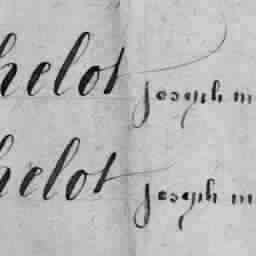 helot joseph m
helot joseph m